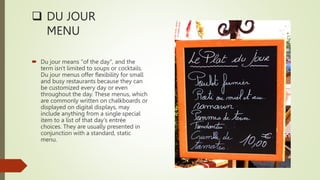 DU JOUR
MENU
Du jour means "of the day", and the
term isn't limited to soups or cocktails.
Du jour menus offer flexibility for small
and busy restaurants because they can
be customized every day or even
throughout the day. These menus, which
are commonly written on chalkboards or
displayed on digital displays, may
include anything from a single special
item to a list of that day's entrée
choices. They are usually presented in
conjunction with a standard, static
menu.
Le Plat du Jour
Poulet fermier
Roti au miel et au
romarin
Pommes de terre
fondantes
Crumble de
tomates
10,00€